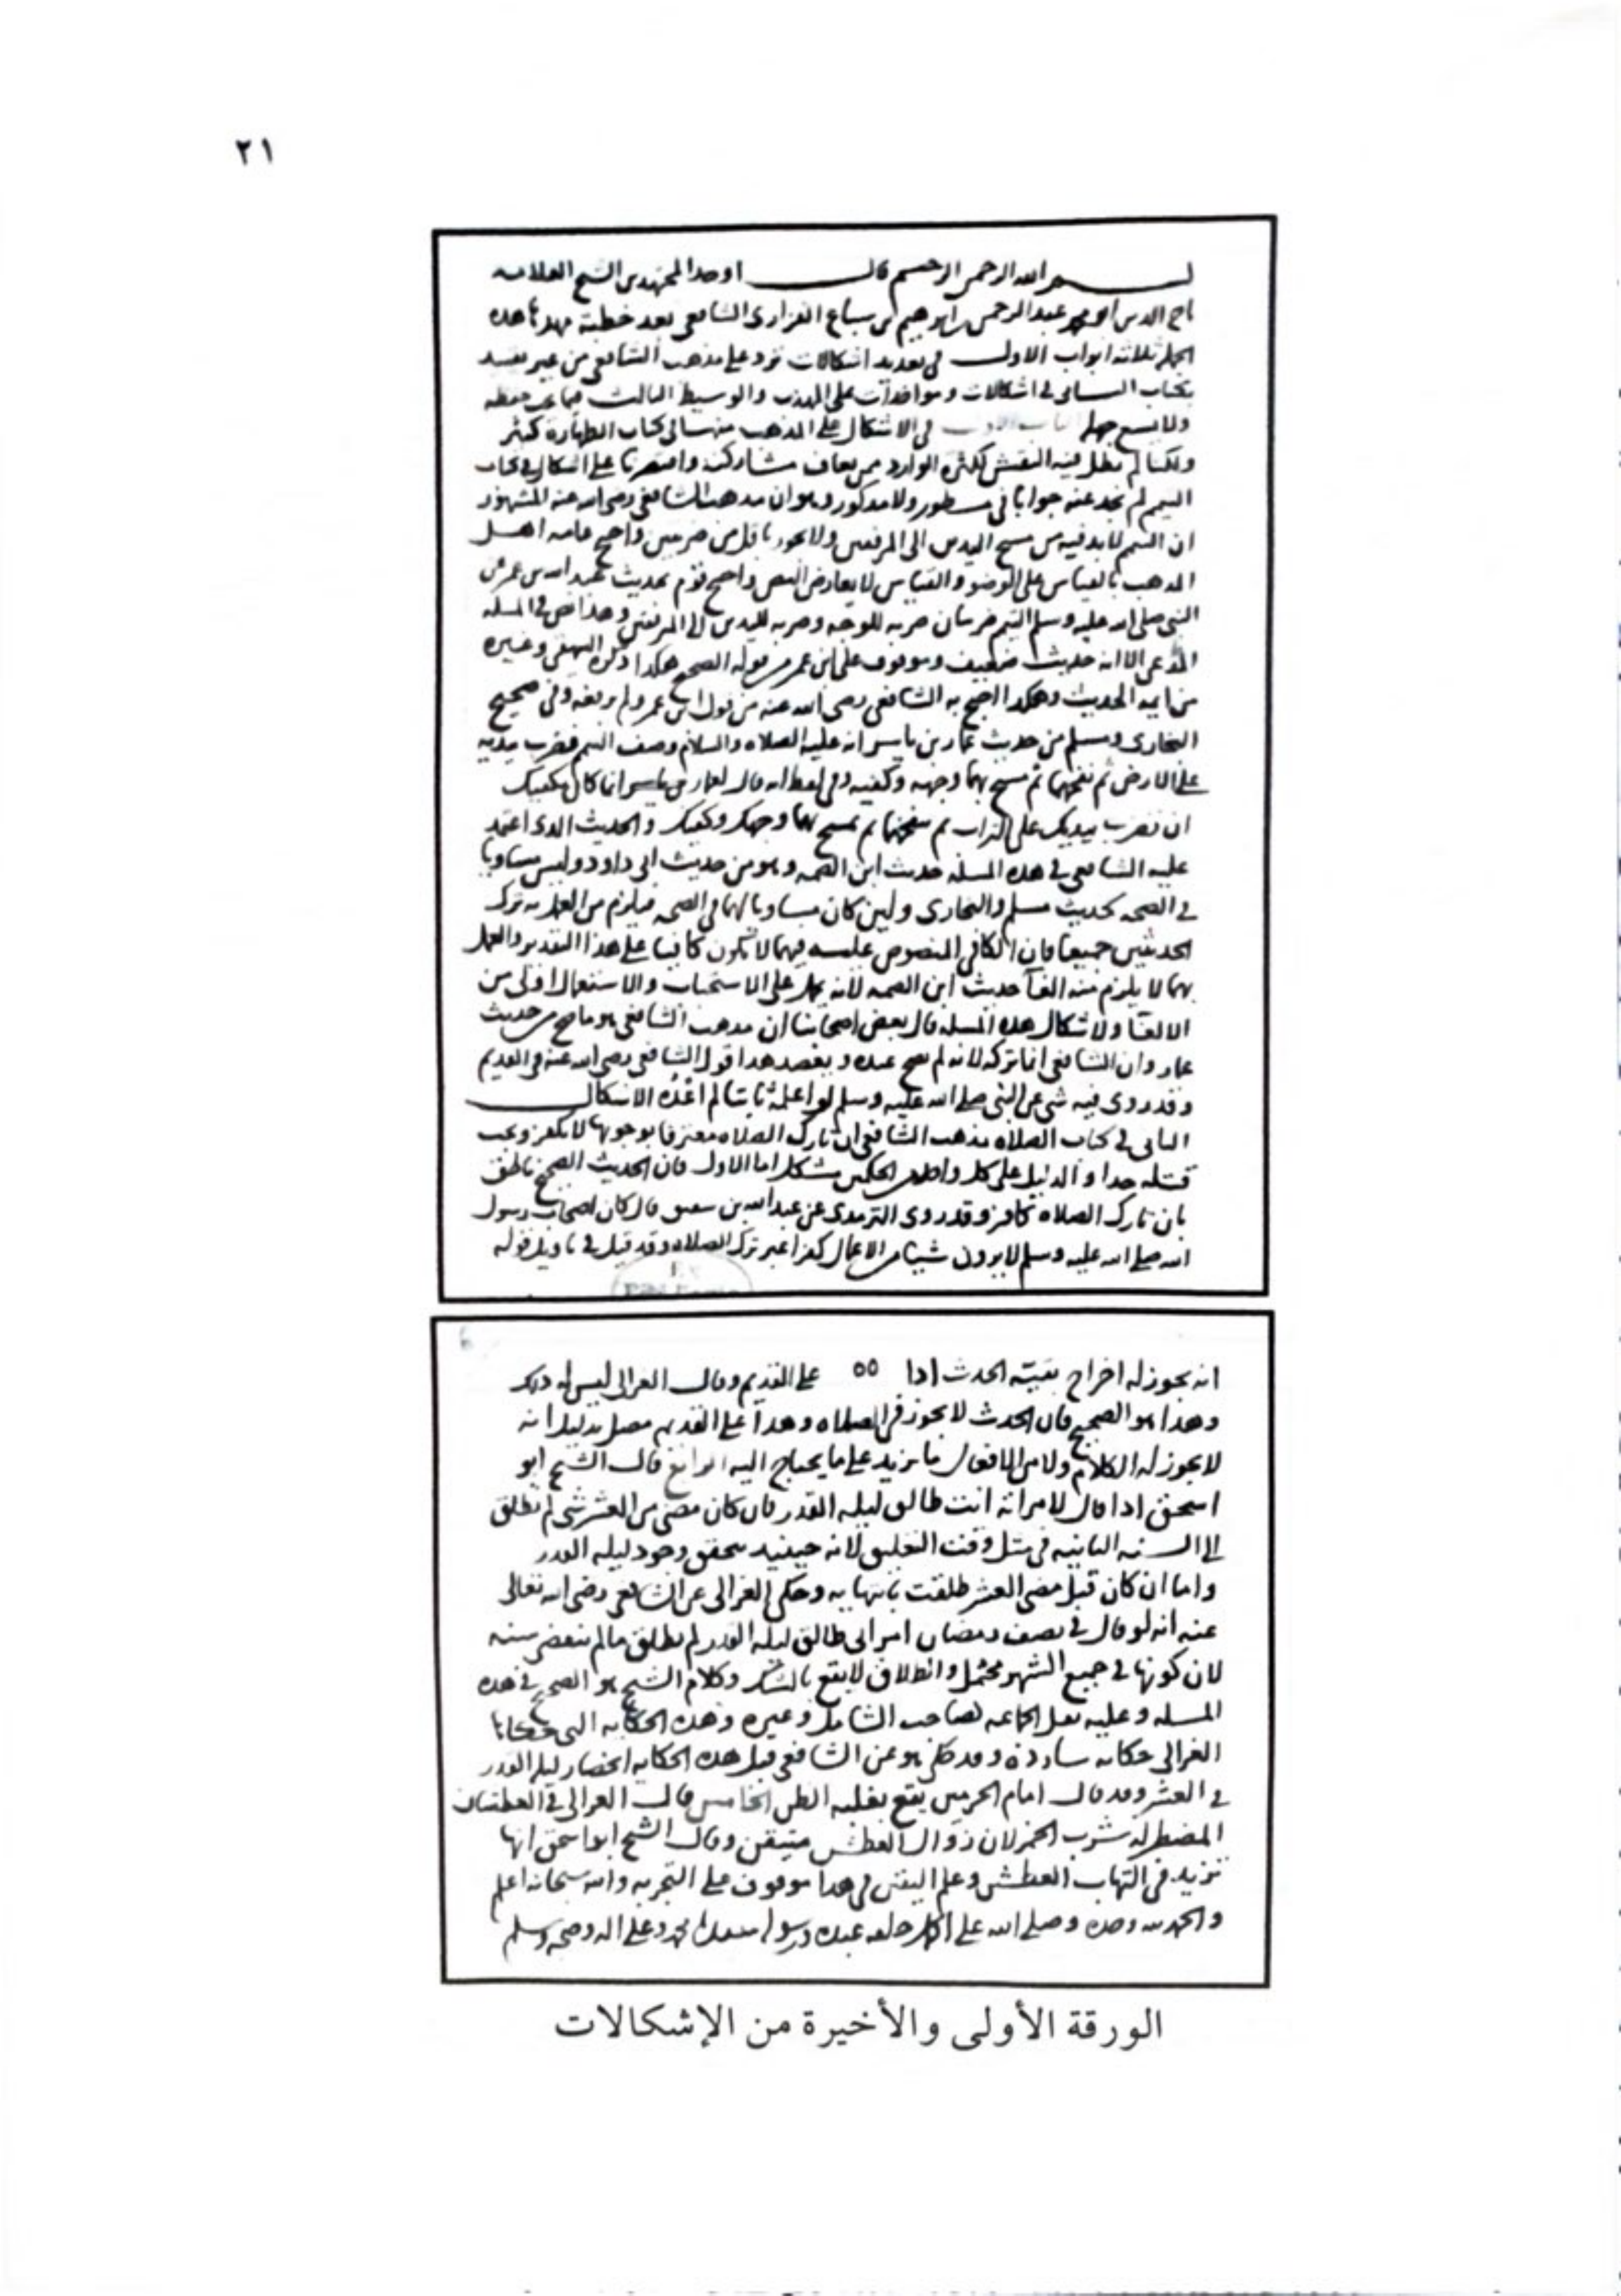 ٢١
بسم الله الرحمن الرحيم قال اوحد المجتهدين الشيخ العلامه
تاج الدين ابو محمد عبد الرحمن بن ابراهيم بن سباع الفزارى الشافعى بعد خطبة مهد بها هده
الجمله ثلاثة ابواب الاول فى تعديد اشكالات ترد على مذهب الشافعى من غير تقييد
بكتاب الثانى فى اشكالات ومواخذات على المهذب والوسيط الثالث فيما يجب حفظه
ولا يسع جهله الباب الاول فى الاشكال على المذهب من مسائل كتاب الطهاره كثير
ولكنا لم نطل فيه النفس لكثره الوارد واقتصرنا على اشكال فى كتاب
التيمم لم نجد عنه جوابا فى مسطور ولا مدكور وهو ان مذهب الشافعى رضى الله عنه المشهور
ان التيمم لا بد فيه من مسح اليدين الى المرفقين ولا يجوز باقل من ضربتين واحتج عامه اهل
المذهب بالقياس على الوضو والقياس لا يعارض النص واحتج قوم بحديث عبد الله بن عمر عن
النبى صلى الله عليه وسلم التيمم ضربتان ضربه للوجه وضربه لليدين الى المرفقين وهذا نص فى المسله
المدعى الا انه حديث ضعيف وموقوف على ابن عمر من قوله الصحيح هكذا ذكره البيهقى وغيره
من ايمه الحديث وهكذا احتج به الشافعى رضى الله عنه من قول ابن عمر ولم يرفعه وفى صحيح
البخارى ومسلم من حديث عمار بن ياسر انه عليه الصلاه والسلام وصف التيمم فضرب بيديه
على الارض ثم نفخهما ثم مسح بهما وجهه وكفيه وفى لفظ انه قال لعمار بن ياسر انما كان يكفيك
ان تضرب بيديك على التراب ثم تنفخهما ثم تمسح بهما وجهك وكفيك والحديث الدى اعتمد
عليه الشافعى فى هده المسله حديث ابن الصمه وهو من حديث ابى داود وليس مساويا
فى الصحه لحديث مسلم والبخارى ولين كان مساويا لهما فى الصحه فيلزم من العمل به ترك
الحديثين جميعا فان الكافى المنصوص عليه فيهما لا يكون كافيا على هذا التقدير والعمل
بهما لا يلزم منه الغا حديث ابن الصمه لانه يحمل على الاستحباب والاستعمال اولى من
الالغا ولاشكال هده المسله قال بعض اصحابنا ان مذهب الشافعى هو ما صح من حديث
عمار وان الشافعى انما تركه لانه لم يصح عنده ويعضد هدا قول الشافعى رضى الله عنه فى القديم
وقد روى فيه شى عن النبى صلى الله عليه وسلم لو اعلمه ثابتا لم اعده الاشكال
الثانى فى كتاب الصلاه مذهب الشافعى ان تارك الصلاه معترفا بوجوبها لا يكفر ويجب
قتله حدا والدليل على كل واحد من الحكمين مشكل اما الاول فان الحديث الصحيح ناطق
بان تارك الصلاه كافر وقد روى الترمدى عن عبد الله بن شقيق قال كان اصحاب رسول
الله صلى الله عليه وسلم لا يرون شيا من الاعمال كفرا غير ترك الصلاه وقد قيل فى تاويل قوله
انه يجوز له اخراج بقية الحدث ادا ٥٥ على القديم وقال الغزالى ليس له دلك
وهدا هو الصحيح فان الحدث لا يجوز فى الصلاه وهدا على القديم مصل بدليل انه
لا يجوز له الكلام ولا من الافعال ما يزيد على ما يحتاج اليه الرابع قال الشيخ ابو
اسحق ادا قال لامراته انت طالق ليله القدر فان كان مضى من العشر شى لم تطلق
الى السنه الثانيه فى مثل وقت التعليق لانه حينيد يتحقق وجود ليله القدر
واما ان كان قبل مضى العشر طلقت بانتهايه وحكى الغزالى عن الشافعى رضى الله تعالى
عنه انه لو قال فى نصف رمضان امراتى طالق ليله القدر لم تطلق مالم تنقض سنه
لان كونها فى جميع الشهر محتمل والطلاق لا يقع بالشك وكلام الشيخ هو الصحيح فى هده
المسله وعليه نقل الجماعه كصاحب الشامل وغيره وهذه الحكايه التى حكاها
الغزالى حكايه شاده وقد حكى هو عن الشافعى قبل هده الحكايه انحصار ليله القدر
فى العشر وقد قال امام الحرمين يقع بغلبه الظن الخامس قال الغزالى فى العطشان
المضطر له شرب الخمر لان زوال العطش متيقن وقال الشيخ ابو اسحق انها
تزيد فى التهاب العطش وعلم اليقين فى هدا موقوف على التجربه والله سبحانه اعلم
والحمد لله وحده وصلى الله على اكمل خلقه عبده ورسوله محمد وعلى اله وصحبه وسلم
الورقة الأولى والأخيرة من الإشكالات